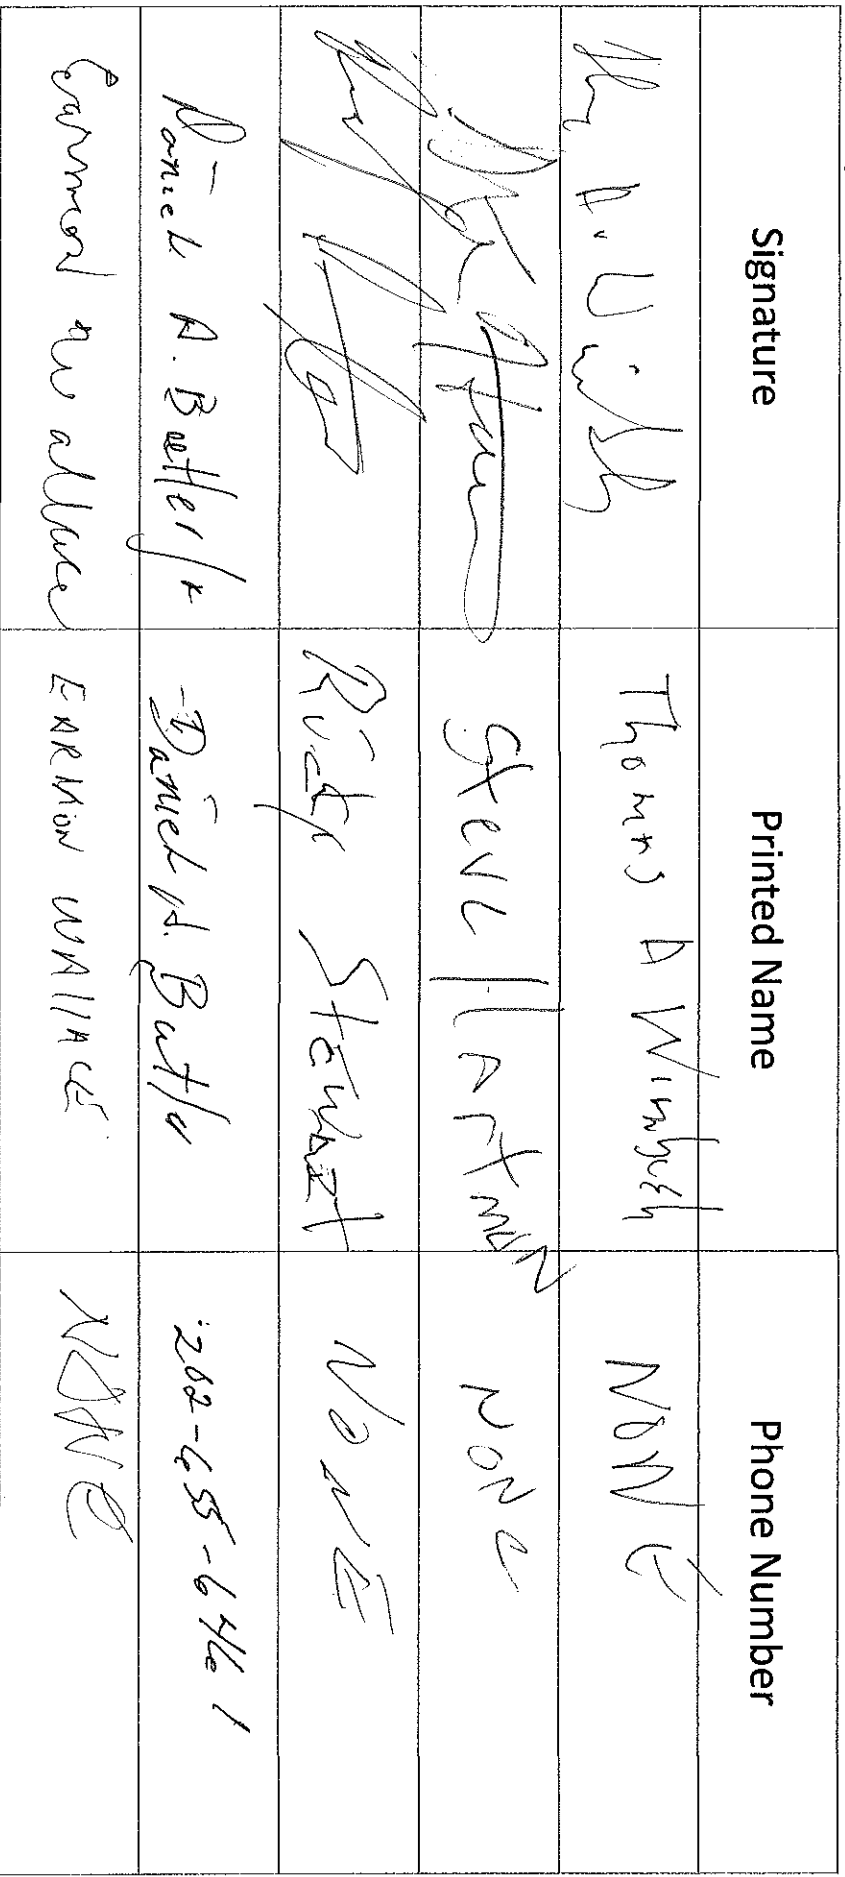 Signature Printed Name Phone Number
Thomas A Wimbush NONE
Steve HArtmaN NONe
Ricky Stewart NONE
Daniel A. Butler Jr Daniel A. Butler 202-655-6461
Earmon Wallace EARMON WAllACE NONE